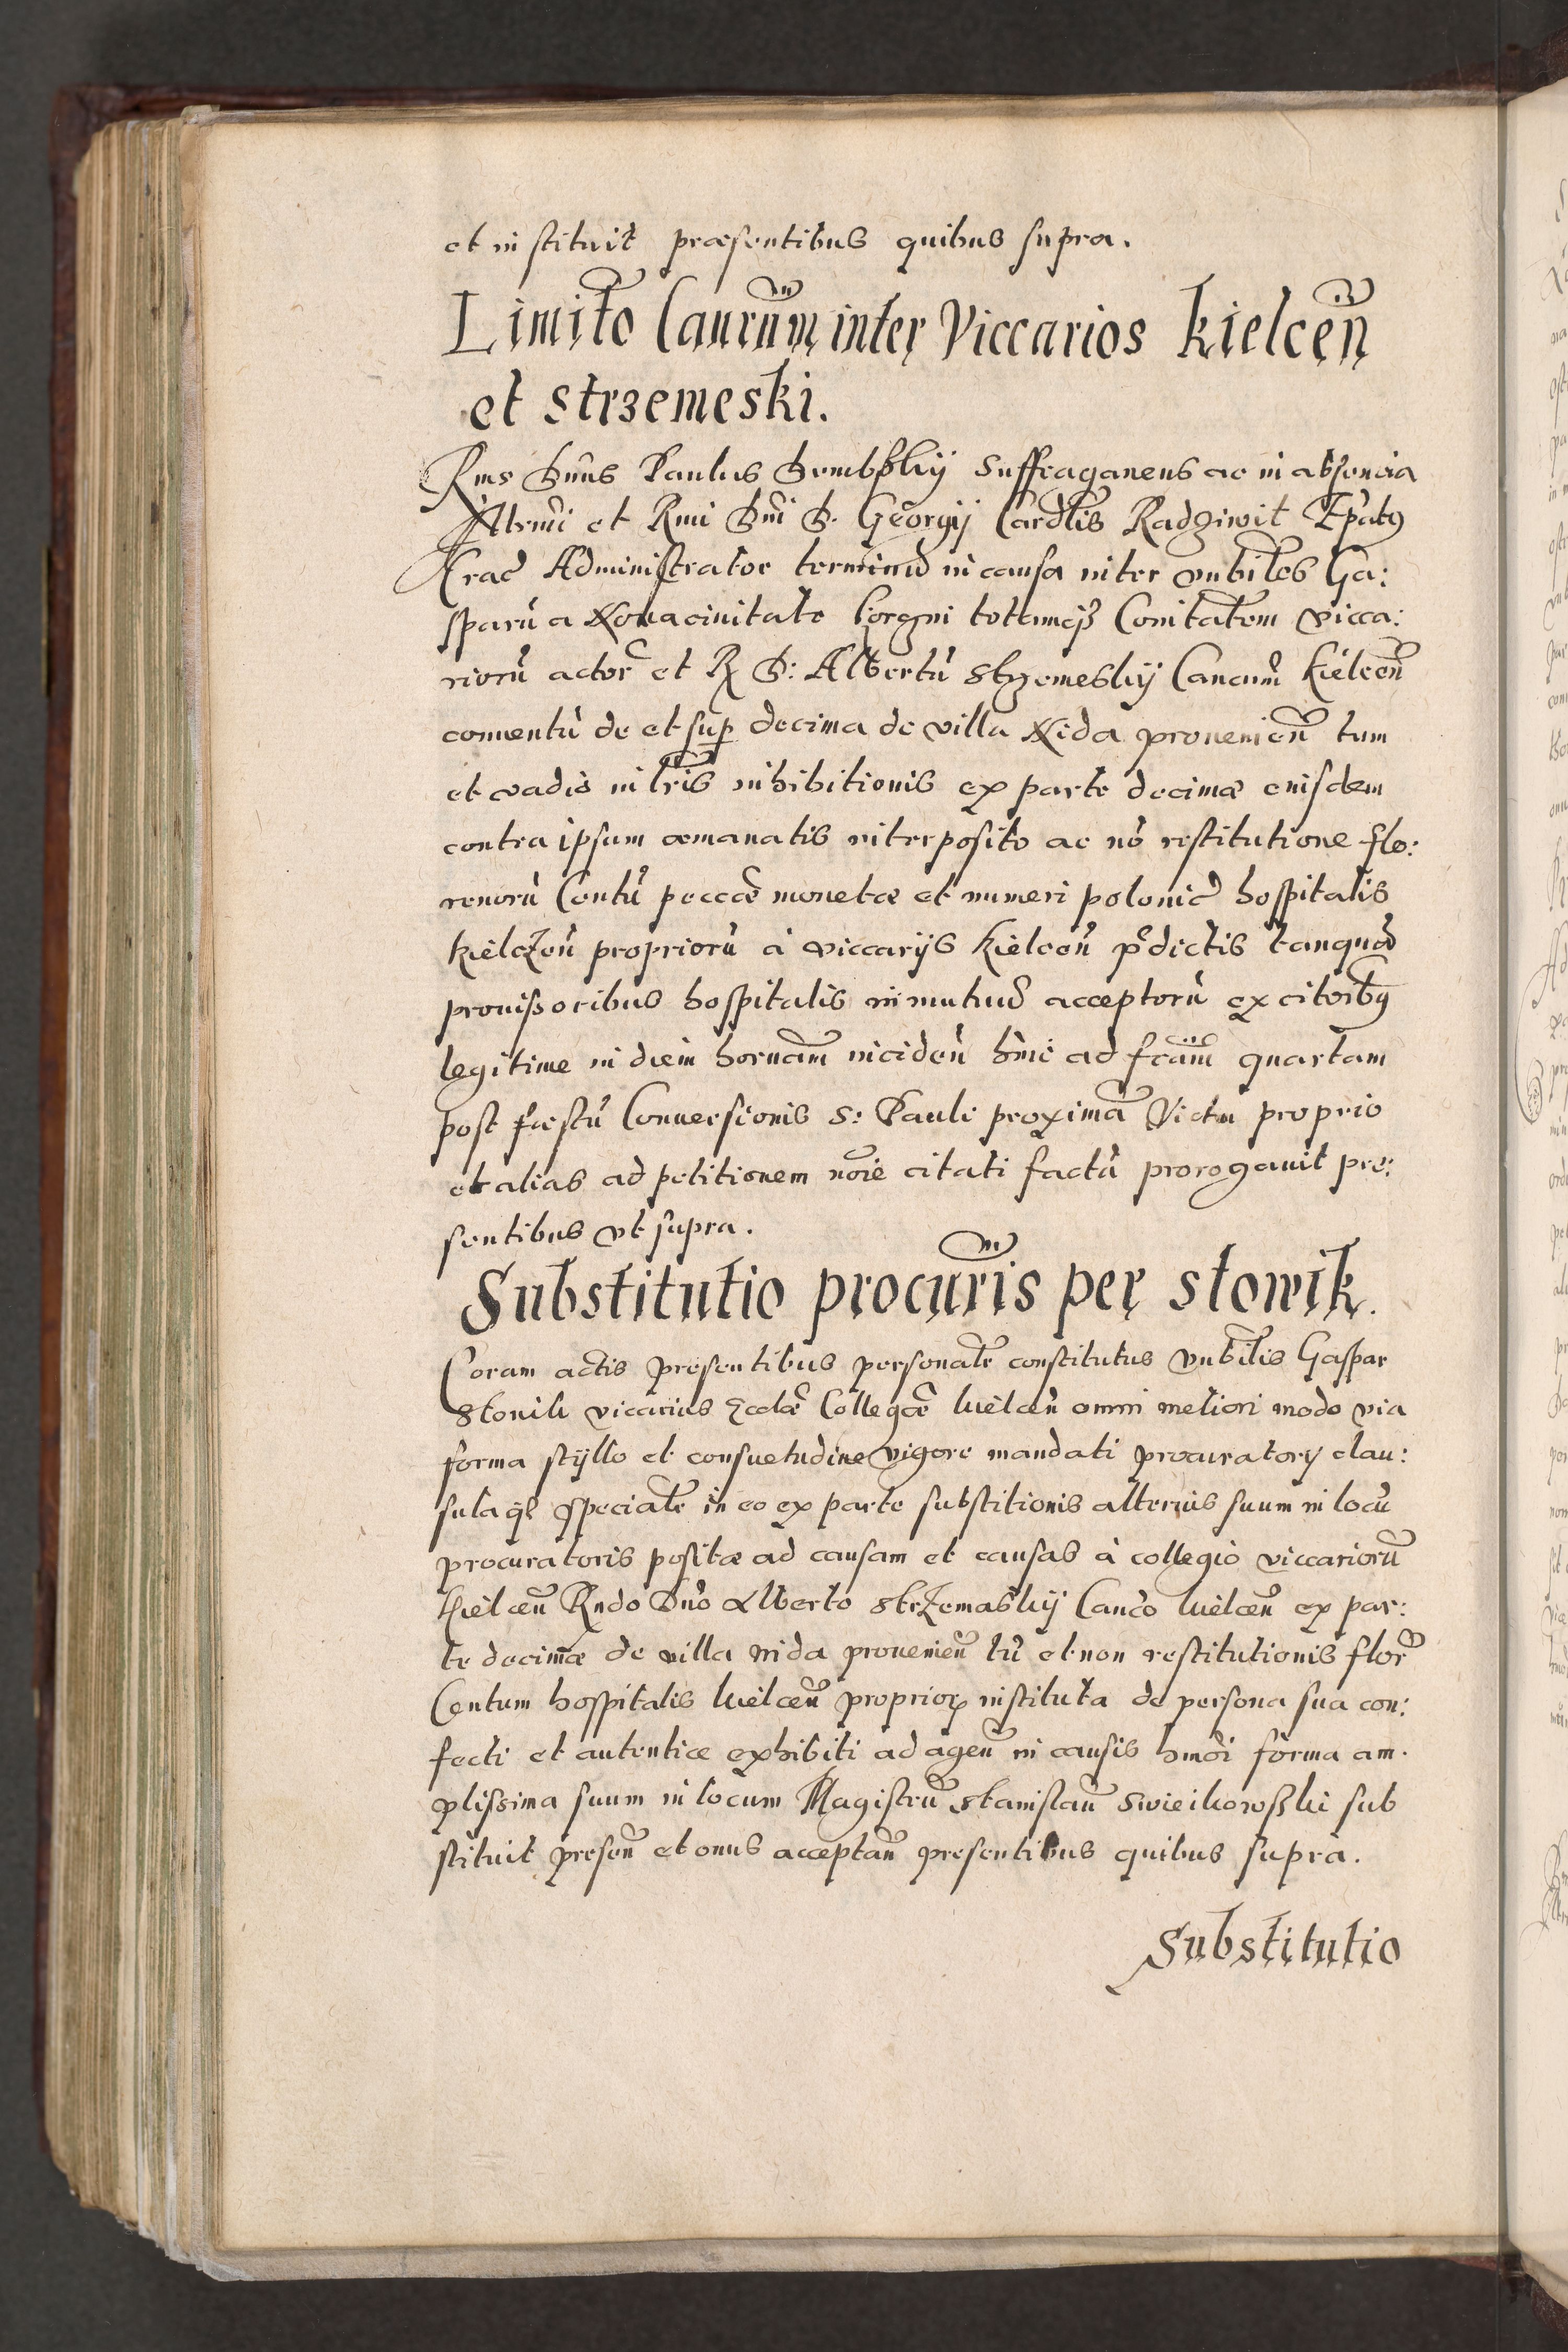 et instituit præsentibus quibus supra.
Limito Caurũm inter Viccarios Kielceñ
et Strzemeski.
Rms Dnus Paulus Dembskij Suffraganeus ac in absencia
Illrmi et Rmi Dni D. Georgij Cardlis Radziwił Epatꝰ
Crac Administrator terminũ in causa inter vnbiles Ga:
sparũ a Nouaciuitate totamqȝ Comitatem vicca:
riorũ actor et R D: Albertũ Strzemeskij Cancum Kielceñ
conuentũ de et sup decima de villa Nida prouenieñ tum
et vadio in lris inhibitionis ex parte decimæ eiusdem
contra ipsum æmanatis interposito ac nõ restitutione flo:
renorũ Centũ peccæ monetæ et numeri polonic hospitalis
Kielczeñ propriorũ à viccarijs Kielceñ pdictis tanquã
prouissoribus hospitalis in mutuũ acceptorũ ex citoribꝰ
legitime in diem hornam incideñ hinc ad feriam quartam
post fæstũ Conuersionis S: Pauli proximã Victu proprio
et alias ad petitionem noie citati factã prorogauit pre:
sentibus vt supra.
Substitutio procuris per Słowik.
Coram actis presentibus personalr constitutus vnbilis Gaspar
Słouik viccarius Eccłæ Collegæ kielceñ omni meliori modo via
forma styllo et consuetudine vigore mandati procuratory clau:
sulaqȝ specialr in eo ex parte substitionis alterius suum in locũ
procuratoris positæ ad causam et causas à collegio viccariorũ
Kielceñ Rndo Dno Alberto Strzemaskij Canco kielceñ ex par:
te decimæ de villa Nida prouenieñ tũ et non restitutionis flor
Centum hospitalis kielceñ proprior instituta de persona sua con:
fecti et autentice exhibiti ad ageñ in causis hmoi forma am.
plissima suum in locum Magistrũ Stanislaũ Swieikowski sub
stituit preseñ et onus acceptañ presentibus quibus supra.
Substitutio